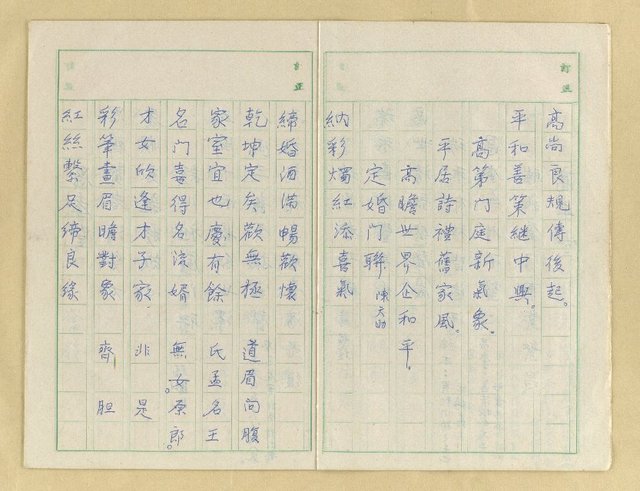 高尚良規傳後起。
平和善策繼中興。
高第門庭新氣象。
平居詩禮舊家風。
高瞻世界企和平。
定婚門聯 陳天助
納彩燭紅添喜氣
締婚酒滿暢歡懷
乾坤定矣歡無極 道眉向腹
家室宜也慶有餘 氏孟名王
名門喜得名流婿 無女原郎。
才女欣逢才子家 非是
彩筆畫眉瞻對象 齊胆
紅絲繫足締良緣
訂正
訂正